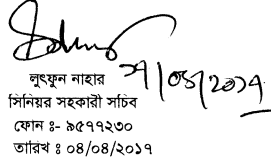 লুৎফুন নাহার
সিনিয়র সহকারী সচিব
ফোন ঃ- ৯৫৭৭২৩০
তারিখ ঃ ০৪/০৪/২০১৭